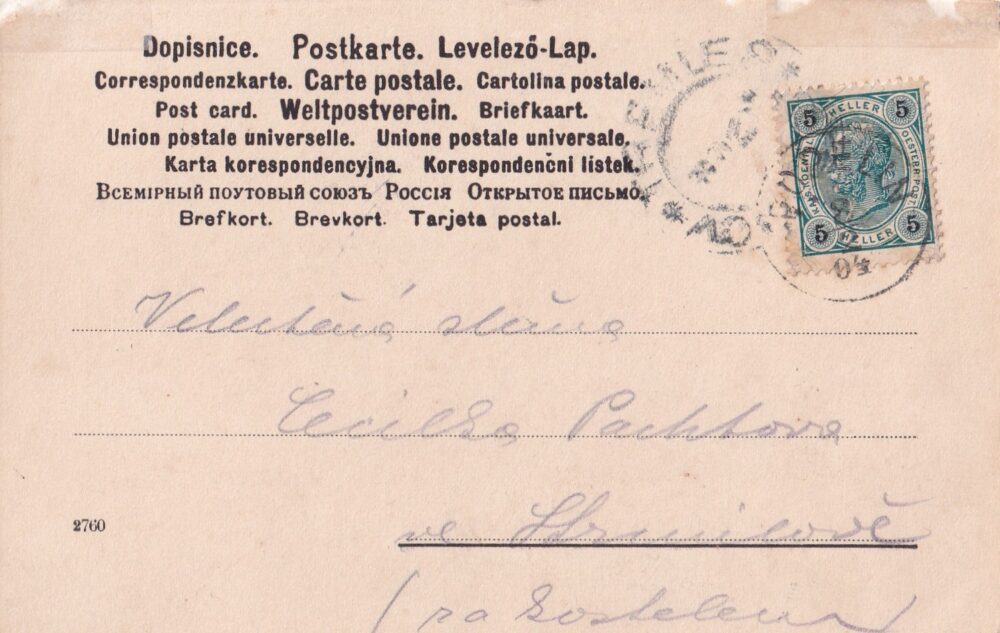 Dopisnice. Postkarte. Levelező-Lap.
Correspondenzkarte. Carte postale. Cartolina postale.
Post card. Weltpostverein. Briefkaart.
Union postale universelle. Unione postale universale.
Karta korespondencyjna. Korespondenčni listek.
Всемірный поутовый союзъ Россія Открытое письмо.
Brefkort. Brevkort. Tarjeta postal.
5 HELLER 5
OESTERR. POST
5 HELLER 5
Veluctěná slečna
Cecilka Pachtova
2760
ve Strmilově
(za kostelem)